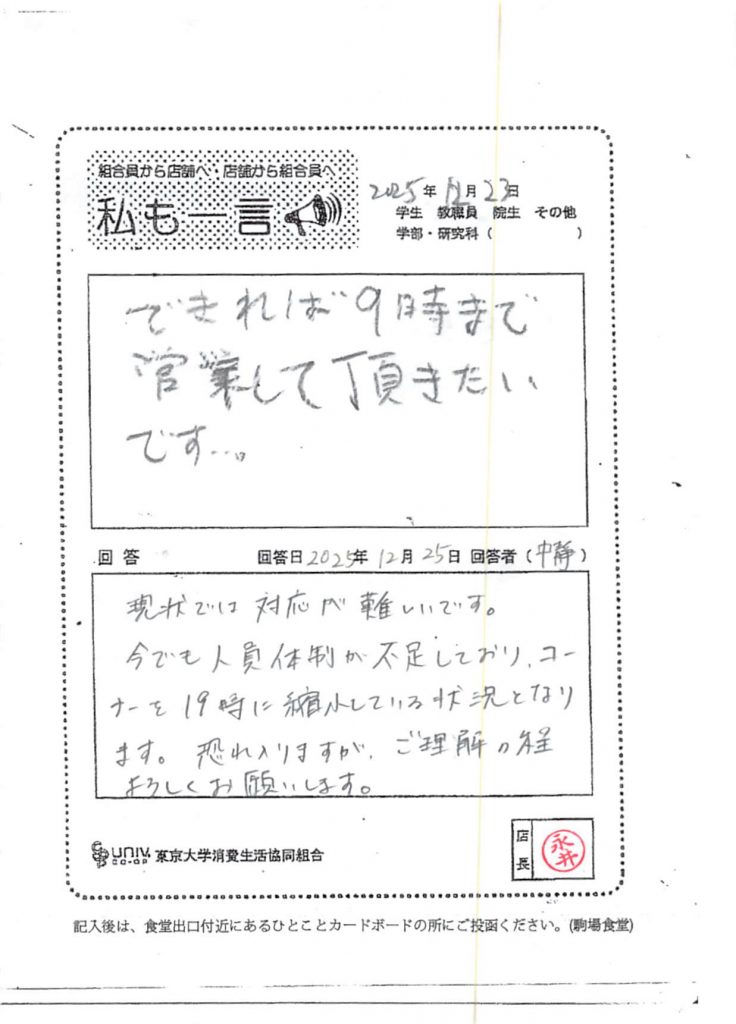 組合員から店舗へ・店舗から組合員へ
私も一言
2025年12月23日
学生 教職員 院生 その他
学部・研究科( )
できれば9時まで
営業して頂きたい
です…。
回答 回答日2025年12月25日 回答者(中静)
現状では対応が難しいです。
今でも人員体制が不足しており、コー
ナーを19時に縮小している状況となり
ます。恐れ入りますが、ご理解の程
よろしくお願いします。
UNIV.
CO-OP
東京大学消費生活協同組合
店長
永井
記入後は、食堂出口付近にあるひとことカードボードの所にご投函ください。(駒場食堂)